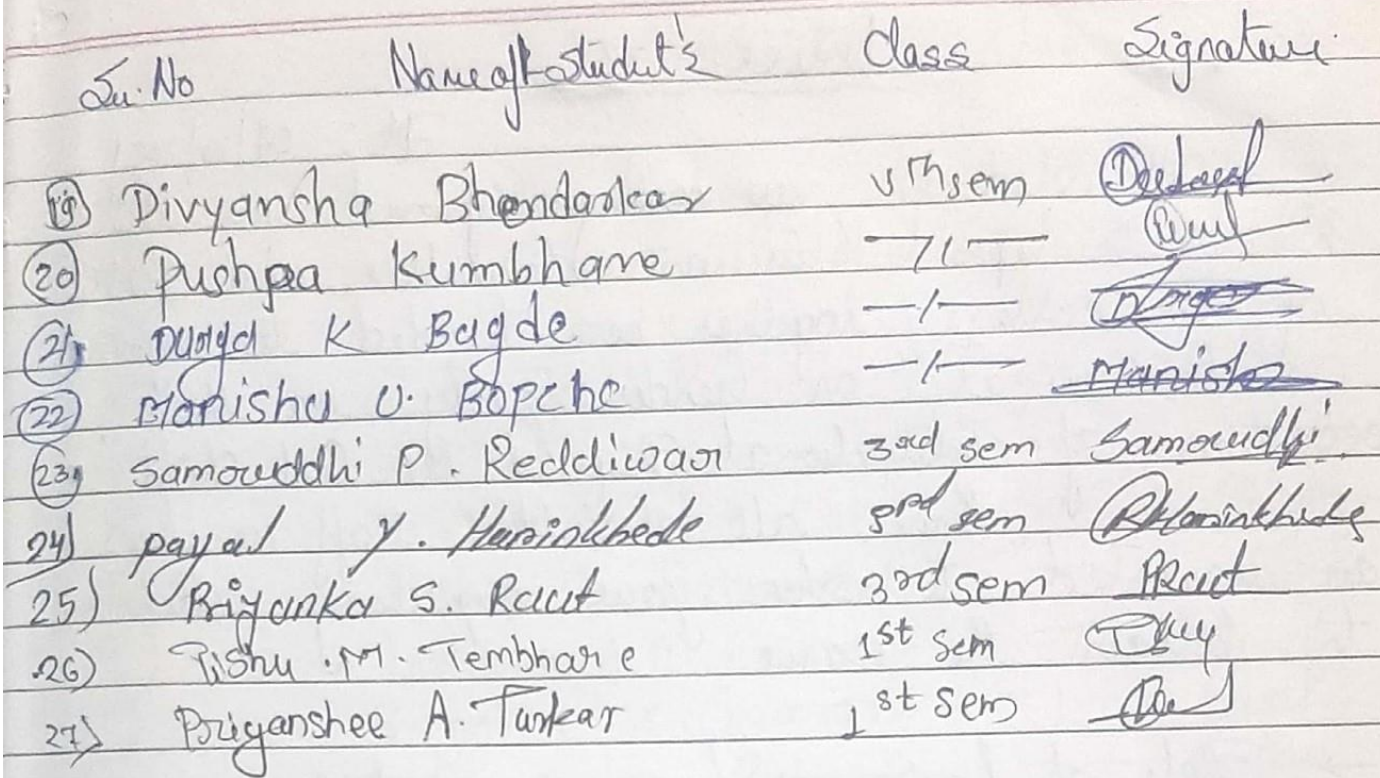 Sr. No Name of student's Class Signature
19) Divyansha Bhandarkar vth sem
20) Pushpa Kumbhare —//—
21) Durga K Bagde —/— Durga
22) Manisha U. Bopche —/— Manisha
23) Samruddhi P. Reddiwar 3rd sem Samruddhi
24) Payal Y. Harinkhede 3rd sem PHarinkhede
25) Priyanka S. Raut 3rd sem PRaut
26) Tishu .M. Tembhare 1st sem
27) Priyanshee A. Turkar 1st sem